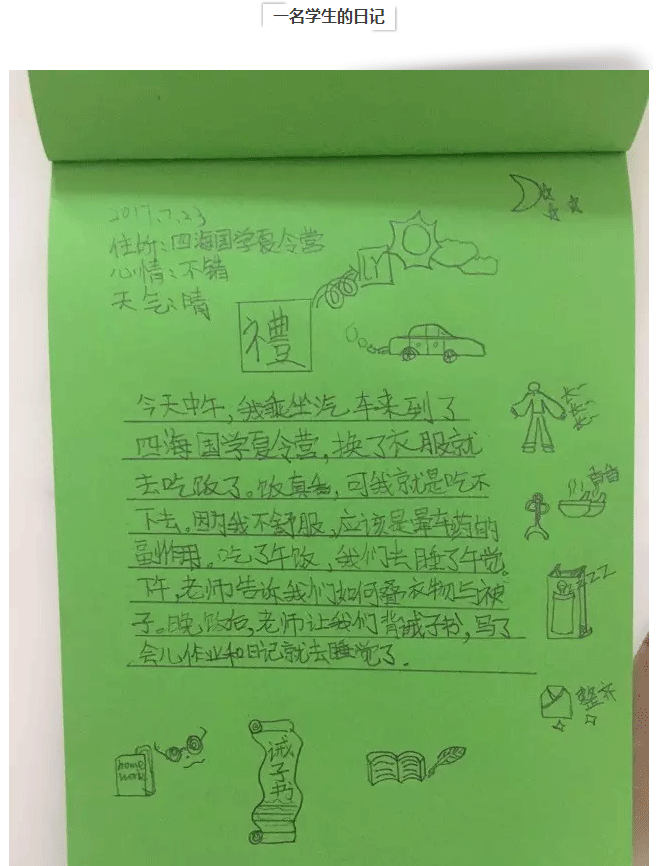 一名学生的日记
2017.7.23
住所:四海国学夏令营
心情:不错
天气:晴
LY
禮
今天中午,我乘坐汽车来到了
四海国学夏令营,换了衣服就
去吃饭了。饭真香,可我就是吃不
下去。因为我不舒服,应该是晕车药的
副作用。吃了午饭,我们去睡了午觉。
下午,老师告诉我们如何叠衣物与被
子。晚饭后,老师让我们背诫子书,写了
会儿作业和日记就去睡觉了.
香香
ZZZ
整齐
home
work
诫子书